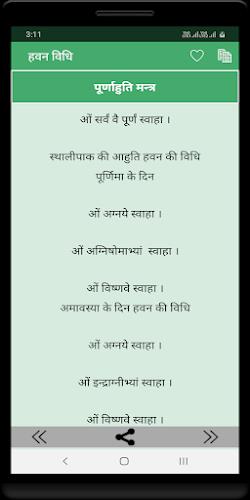 3:11
हवन विधि
पूर्णाहुति मन्त्र
ओं सर्वं वै पूर्णं स्वाहा ।
स्थालीपाक की आहुति हवन की विधि
पूर्णिमा के दिन
ओं अग्नये स्वाहा ।
ओं अग्निषोमाभ्यां स्वाहा ।
ओं विष्णवे स्वाहा ।
अमावस्या के दिन हवन की विधि
ओं अग्नये स्वाहा ।
ओं इन्द्राग्नीभ्यां स्वाहा ।
ओं विष्णवे स्वाहा ।